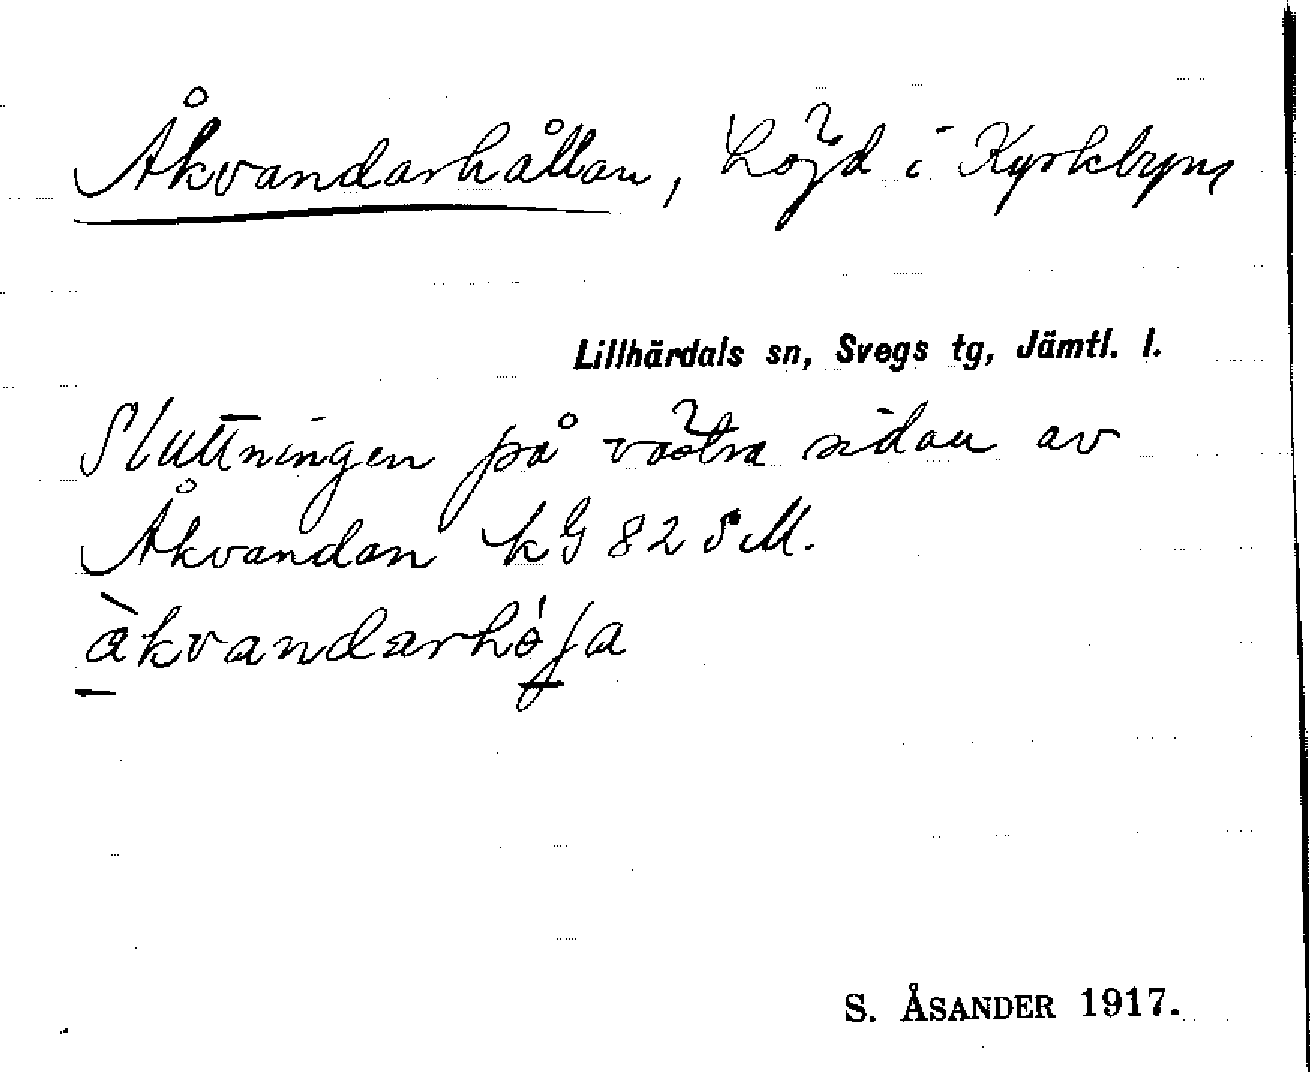 Åkvandarhållan, höjd i Kyrkbyn
Lillhärdals sn, Svegs tg, Jämtl. l.
Sluttningen på västra sidan av
Åkvandan kG 82 SM.
åkvandarhö́ɟa
S. ÅSANDER 1917.